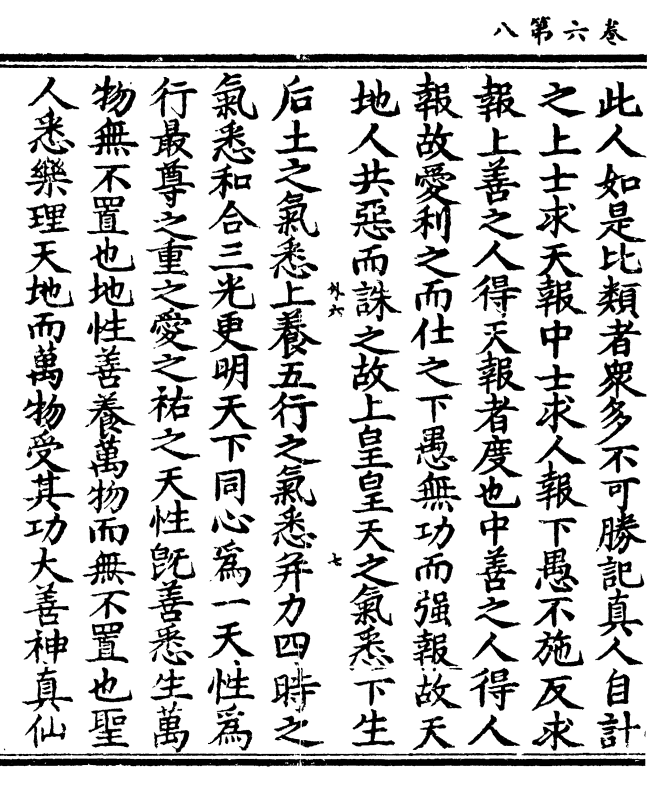 卷六第八
此人如是比類者衆多不可勝記真人自計
之上士求天報中士求人報下愚不施反求
報上善之人得天報者度也中善之人得人
報故愛利之而仕之下愚無功而强報故天
地人共惡而誅之故上皇皇天之氣悉下生
外六
七
后土之氣悉上養五行之氣悉并力四時之
氣悉和合三光更明天下同心為一天性為
行最尊之重之愛之祐之天性旣善悉生萬
物無不置也地性善養萬物而無不置也聖
人悉樂理天地而萬物受其功大善神真仙